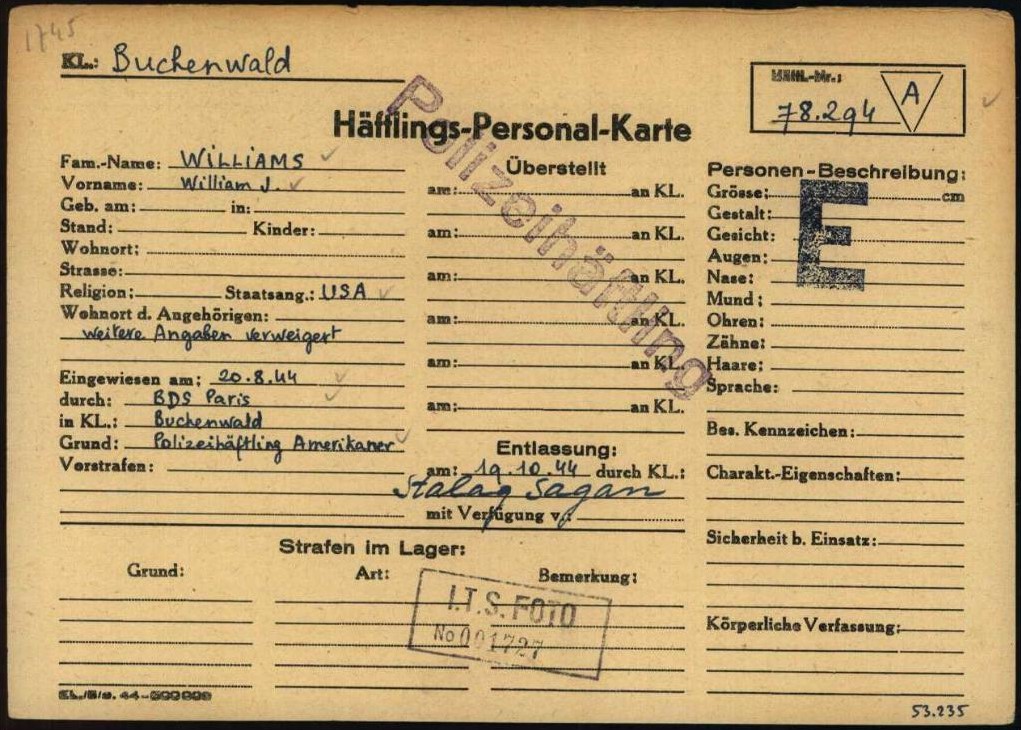 1745
KL.: Buchenwald
Häftl.-Nr.:
78.294 A
Häftlings-Personal-Karte
Polizeihäftling
Fam.-Name: WILLIAMS
Vorname: William J.
Geb. am: in:
Stand: Kinder:
Wohnort:
Strasse:
Religion: Staatsang.: USA
Wohnort d. Angehörigen:
weitere Angaben verweigert
Eingewiesen am: 20.8.44
durch: BDS Paris
in KL.: Buchenwald
Grund: Polizeihäftling Amerikaner
Vorstrafen:
Überstellt
am: an KL.
am: an KL.
am: an KL.
am: an KL.
am: an KL.
am: an KL.
Entlassung:
am: 19.10.44 durch KL.:
Stalag Sagan
mit Verfügung v.:
Personen-Beschreibung:
E
Grösse: cm
Gestalt:
Gesicht:
Augen:
Nase:
Mund:
Ohren:
Zähne:
Haare:
Sprache:
Bes. Kennzeichen:
Charakt.-Eigenschaften:
Sicherheit b. Einsatz:
Körperliche Verfassung:
Strafen im Lager:
Grund: Art: Bemerkung:
I.T.S. FOTO
No 001727
53.235